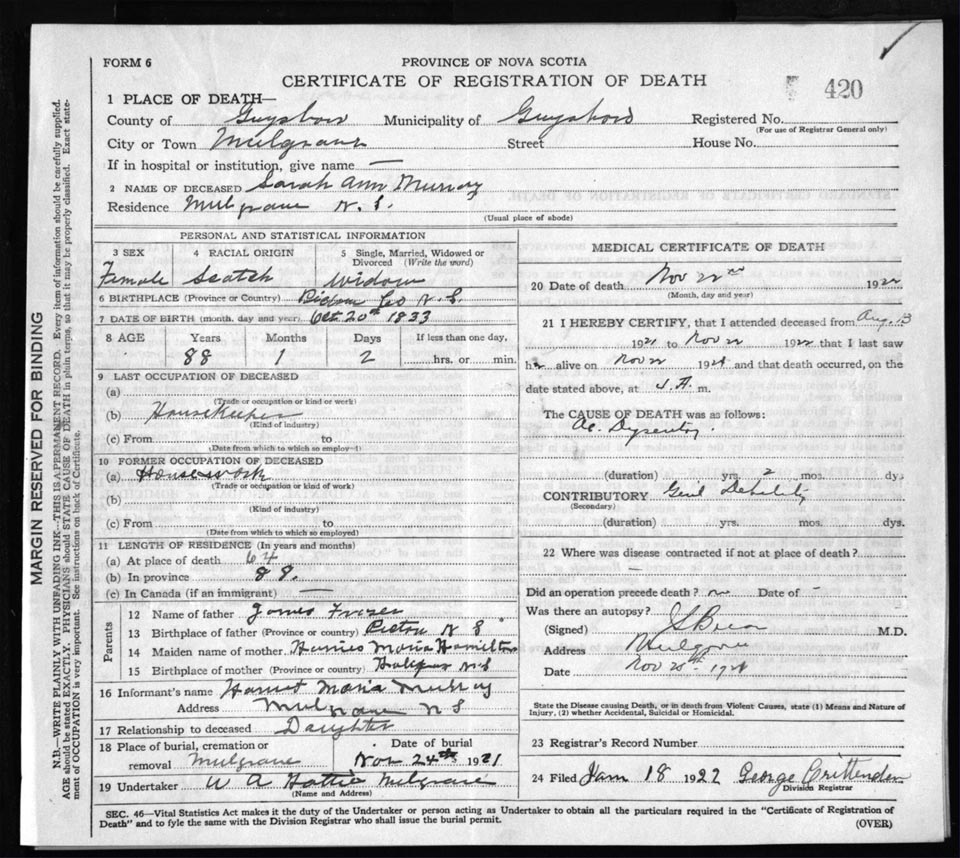 FORM 6
PROVINCE OF NOVA SCOTIA
CERTIFICATE OF REGISTRATION OF DEATH
420
1 PLACE OF DEATH—
County of Guysboro Municipality of Guysboro Registered No.
(For use of Registrar General only)
City or Town Mulgrave Street House No.
If in hospital or institution, give name —
2 NAME OF DECEASED Sarah Ann Murray
Residence Mulgrave N. S.
(Usual place of abode)
PERSONAL AND STATISTICAL INFORMATION
3 SEX 4 RACIAL ORIGIN 5 Single, Married, Widowed or
Divorced (Write the word)
Female Scotch Widow
6 BIRTHPLACE (Province or Country) Pictou Co N. S.
7 DATE OF BIRTH (month, day and year) Oct 20th 1833
8 AGE Years Months Days If less than one day,
88 1 2 hrs. or min.
9 LAST OCCUPATION OF DECEASED
(a)
(Trade or occupation or kind of work)
(b) Housekeeper
(Kind of industry)
(c) From to
(Date from which to which so employed)
10 FORMER OCCUPATION OF DECEASED
(a) Housework
(Trade or occupation or kind of work)
(b)
(Kind of industry)
(c) From to
(Date from which to which so employed)
11 LENGTH OF RESIDENCE (In years and months)
(a) At place of death 64
(b) In province 88
(c) In Canada (if an immigrant) —
Parents
12 Name of father James Fraser
13 Birthplace of father (Province or country) Pictou N S
14 Maiden name of mother Maria Hamilton
15 Birthplace of mother (Province or country) Halifax N S
16 Informant's name Harriet Maria Murray
Address Mulgrave N S
17 Relationship to deceased Daughter
18 Place of burial, cremation or Date of burial
removal Mulgrave Nov 24th 1921
19 Undertaker W A Hattie Mulgrave
(Name and Address)
MEDICAL CERTIFICATE OF DEATH
20 Date of death Nov 22nd 192
(Month, day and year)
21 I HEREBY CERTIFY, that I attended deceased from Aug. 13
1921 to Nov 22 192 that I last saw
h alive on Nov 22 192 and that death occurred, on the
date stated above, at A. m.
The CAUSE OF DEATH was as follows:
Ac. Dysentery
(duration) yrs. 2 mos. dys
CONTRIBUTORY Genl Debility
(Secondary)
(duration) yrs. mos. dys.
22 Where was disease contracted if not at place of death?
—
Did an operation precede death? no Date of -
Was there an autopsy?
(Signed) M.D.
Address Mulgrave
Date Nov 192
State the Disease causing Death, or in death from Violent Causes, state (1) Means and Nature of
Injury, (2) whether Accidental, Suicidal or Homicidal.
23 Registrar's Record Number
24 Filed Jan 18 1922 George Crittenden
Division Registrar
SEC. 46—Vital Statistics Act makes it the duty of the Undertaker or person acting as Undertaker to obtain all the particulars required in the "Certificate of Registration of
Death" and to fyle the same with the Division Registrar who shall issue the burial permit.
(OVER)
MARGIN RESERVED FOR BINDING
N.B.—WRITE PLAINLY WITH UNFADING INK—THIS IS A PERMANENT RECORD. Every item of information should be carefully supplied.
AGE should be stated EXACTLY. PHYSICIANS should STATE CAUSE OF DEATH in plain terms, so that it may be properly classified. Exact state-
ment of OCCUPATION is very important. See instructions on back of Certificate.